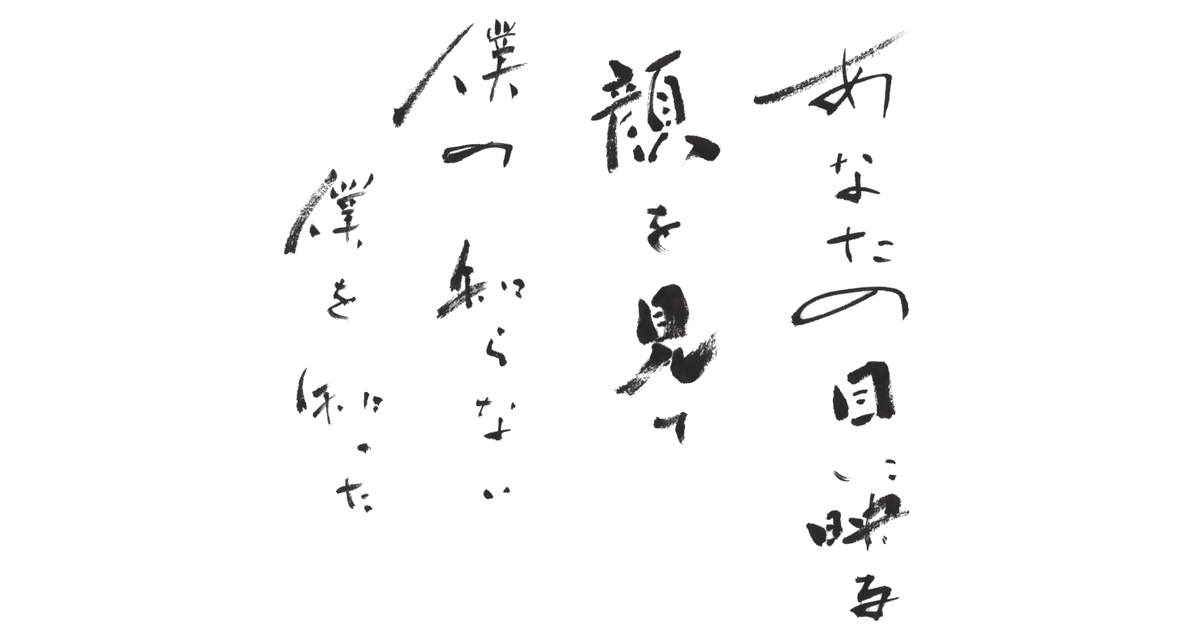 あなたの目に映る
顔を見て
僕の知らない
僕を知った